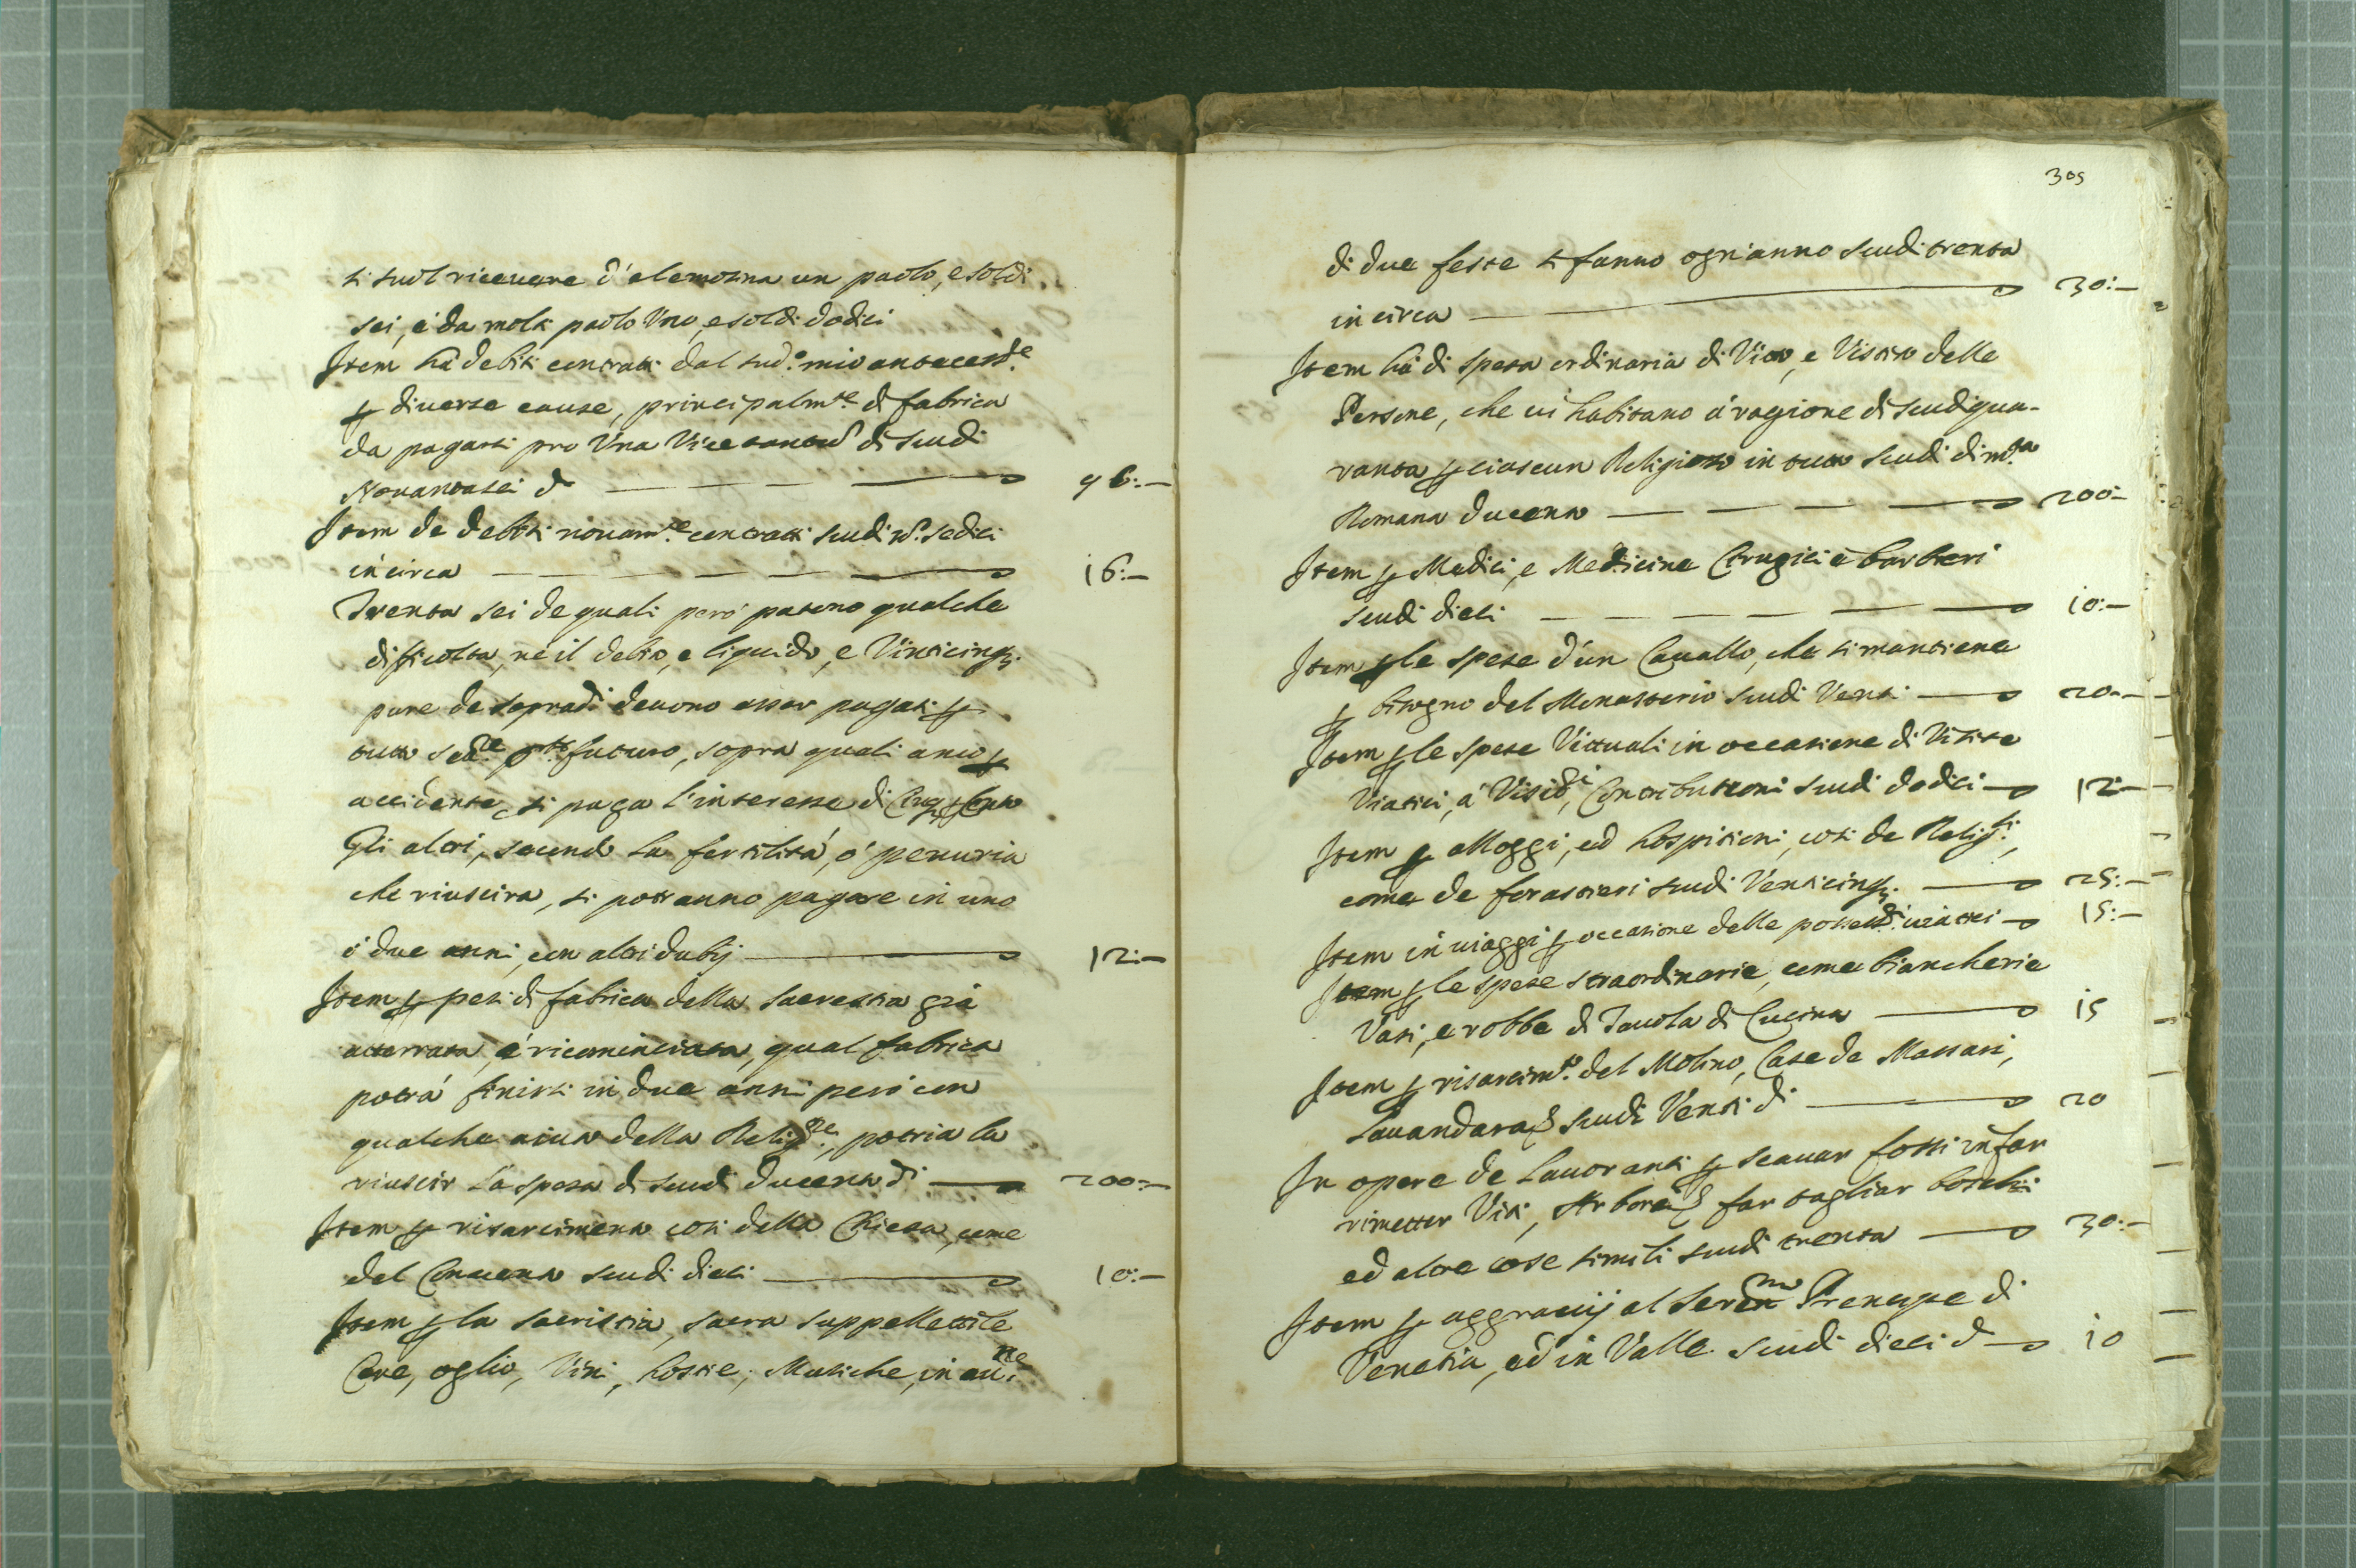 si suol ricevere d'elemosina un paolo, e soldi
sei, è da molti paolo Uno, e soldi dodici
Item hà debiti contratti dal sud.º mio antecess.re
ꝑ diverse cause, principalm.te di fabrica
da pagarsi pro Una Vice tantu di scudi
Novantasei d — — — — 96:—
Item de debiti novam.te contratti scudi nº sedici
in circa — — — — 16:—
Trenta sei de quali però patono qualche
dificolta, nè il debito, e liquido, e Vinticinq;
pure de sopradi devono esser pagati ꝑ
tutto futuro, sopra quali anco ꝑ
accidente, si paga l'interesse di Cinq; ꝑ Cento
Gli altri, secondo la fertilità, ó penuria
che riuscira, si potranno pagare in uno
ó due anni, con altri dubij — 12:—
Item ꝑ pesi di fabrica della sacrestia già
atterrata, è ricominciata, qual fabrica
potrà finirsi in due anni però con
qualche aiuto della Relig.ne, potria la
riuscir la spesa di scudi ducento di — 200:—
Item ꝑ risarcimento cosi della Chiesa, come
del Convento scudi dieci — 10:—
Item ꝑ la sacristia, sacra suppellettile
Cere, oglio, Vini, hostie, Musiche, in
305
di due feste si fanno ogn'anno scudi trenta
in circa — 30:—
Item hà di spesa ordinaria di Vito, e Vistito delle
Persone, che vi habitano á ragione di scudi qua-
ranta ꝑ ciascun Religioso in tutto scudi di m.ta
Romana ducento — — — — 200:—
Item ꝑ Medici, e Medicine Cirugici è barbieri
scudi dieci — — — — 10:—
Item ꝑ le spese d'un Cavallo, che si mantiene
ꝑ bisogno del Monasterio scudi Venti — 20:—
Item ꝑ le spese Vittuali in occasione di Visite
Viatici, á Contributioni scudi dodici — 12:—
Item ꝑ alloggi, ed hospitioni, cosi de Relig.si,
come de forastieri scudi Venticinq; — 25:—
Item in viaggi ꝑ occasione delle viatici — 15:—
Item ꝑ le spese straordinarie, come biancherie
Vasi, e robbe di Tavola di Cucina — 15
Item ꝑ risarcim.to del Molino, Case de Massari,
Lavandara scudi Venti di — 20
In opere de Lavoranti ꝑ scavar fossi in far
rimetter Viti, Arbori far tagliar boschi
ed altre cose simili scudi trenta — 30:—
Item ꝑ aggravij al Seren.mo Prencipe di
Venetia, ed in Valle scudi dieci d — 10